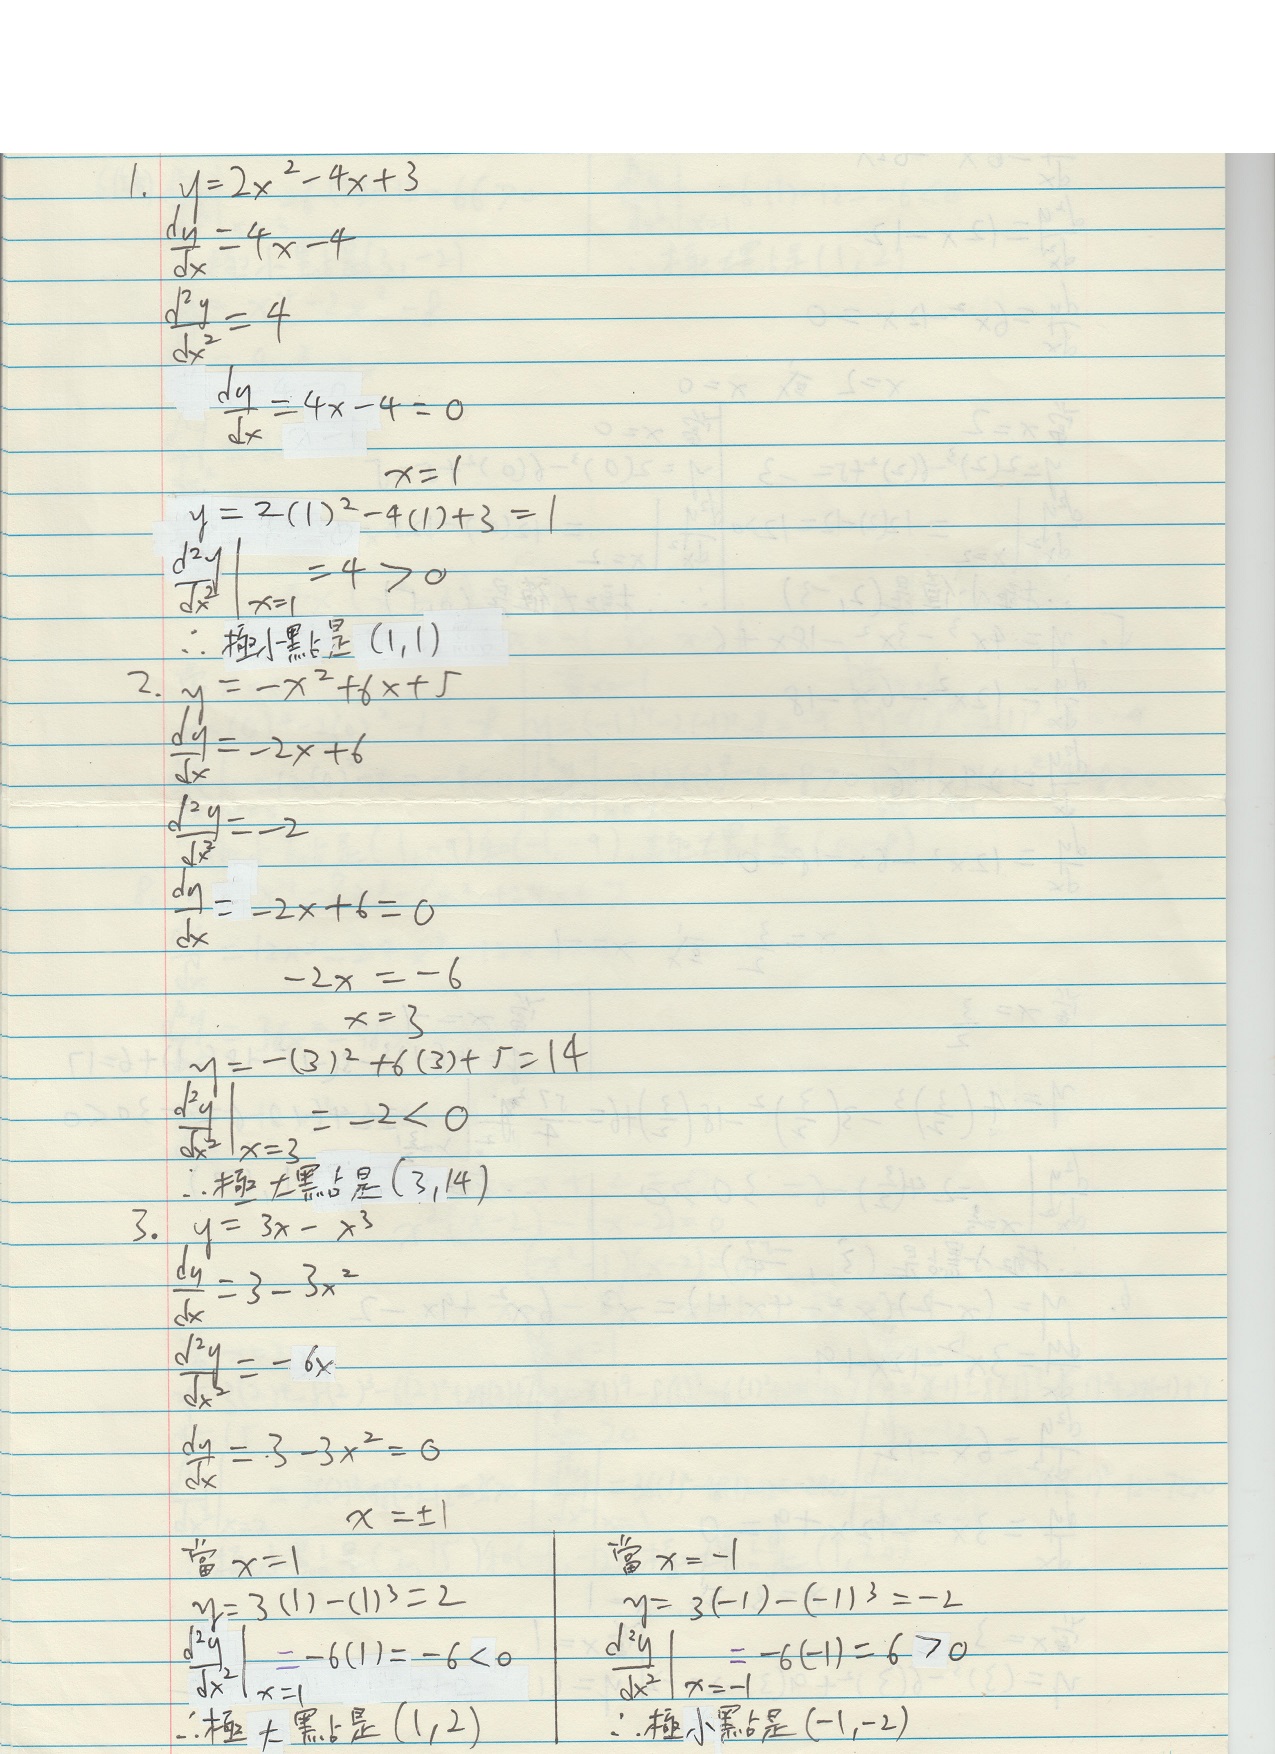 1. y = 2x² - 4x + 3
dy/dx = 4x - 4
d²y/dx² = 4
dy/dx = 4x - 4 = 0
x = 1
y = 2(1)² - 4(1) + 3 = 1
d²y/dx² |x=1 = 4 > 0
∴ 極小點是 (1, 1)
2. y = -x² + 6x + 5
dy/dx = -2x + 6
d²y/dx² = -2
dy/dx = -2x + 6 = 0
-2x = -6
x = 3
y = -(3)² + 6(3) + 5 = 14
d²y/dx² |x=3 = -2 < 0
∴ 極大點是 (3, 14)
3. y = 3x - x³
dy/dx = 3 - 3x²
d²y/dx² = -6x
dy/dx = 3 - 3x² = 0
x = ±1
當 x = 1
y = 3(1) - (1)³ = 2
d²y/dx² |x=1 = -6(1) = -6 < 0
∴ 極大點是 (1, 2)
當 x = -1
y = 3(-1) - (-1)³ = -2
d²y/dx² |x=-1 = -6(-1) = 6 > 0
∴ 極小點是 (-1, -2)